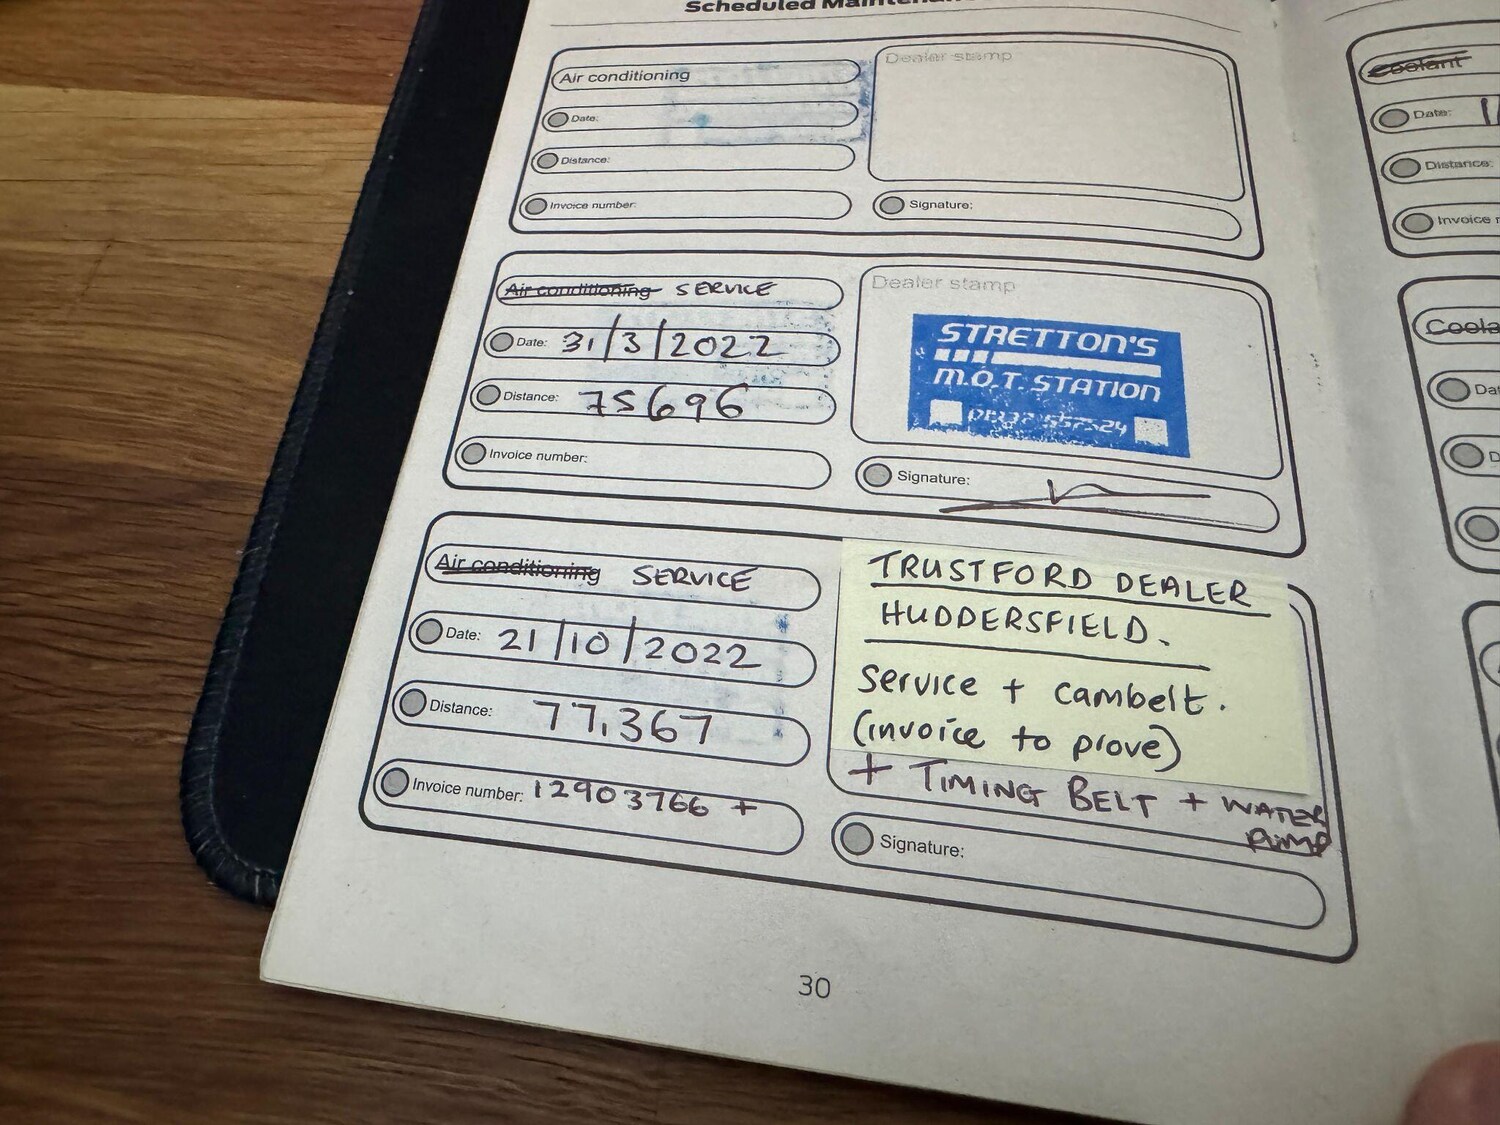 Scheduled Maintenance
Air conditioning
Dealer stamp
Date:
Distance:
Invoice number:
Signature:
Air conditioning SERVICE
Dealer stamp
Date: 31/3/2022
STRETTON'S
M.O.T. STATION
Distance: 75696
Invoice number:
Signature:
Air conditioning SERVICE
TRUSTFORD DEALER
HUDDERSFIELD.
Date: 21/10/2022
Service + cambelt.
Distance: 77,367
(invoice to prove)
+ TIMING BELT + WATER
PUMP
Invoice number: 12903766 +
Signature:
30
Coolant
Date:
Distance:
Invoice